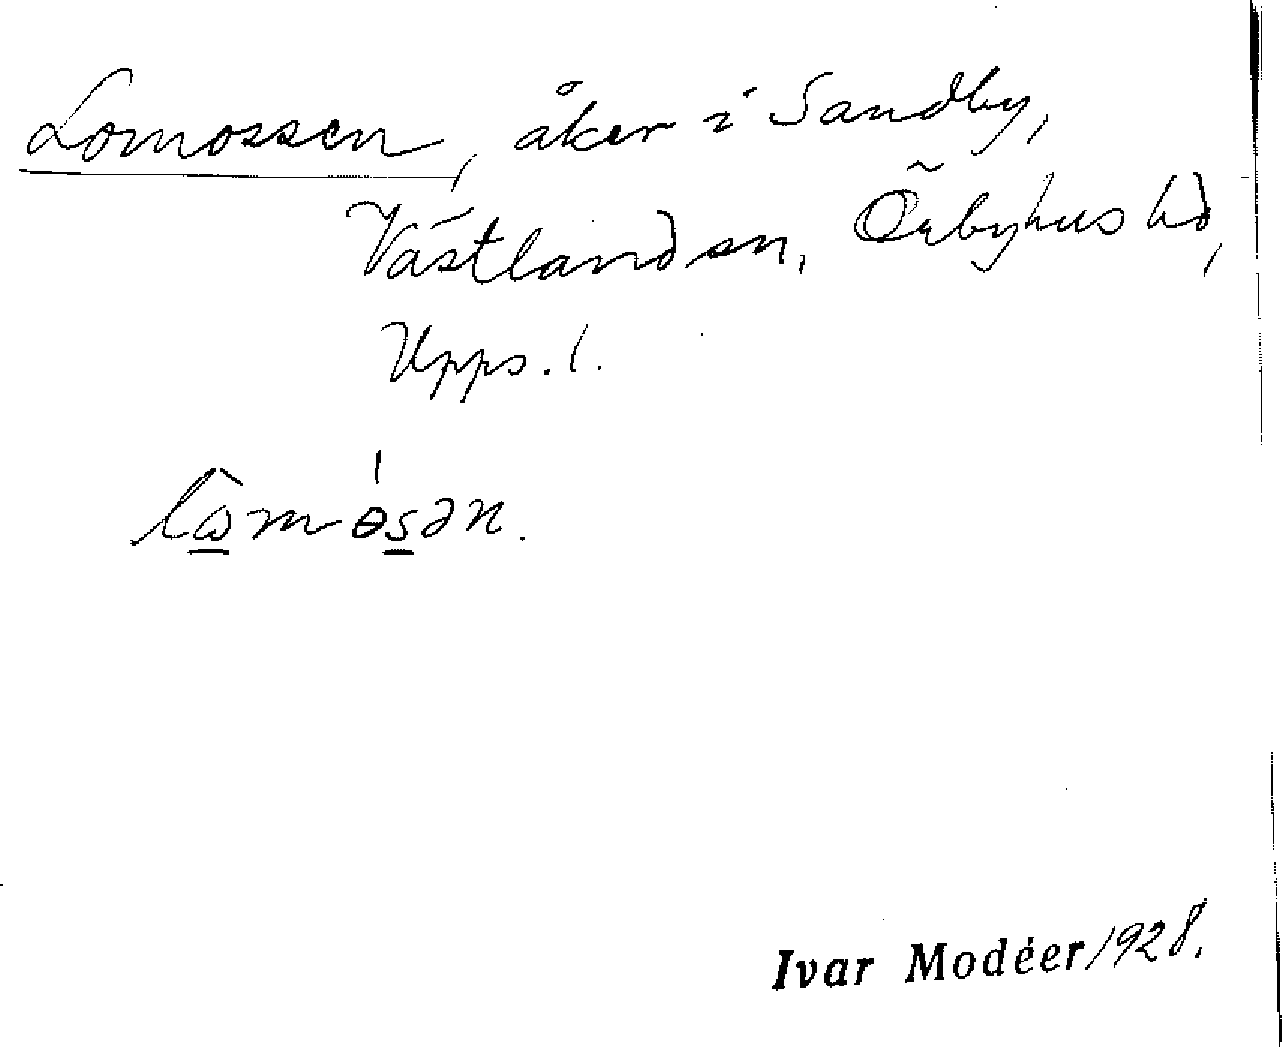 Lomossen, åker i Sandby,
Västland sn, Örbyhus hd,
Upps. l.
Ivar Modéer 1928.